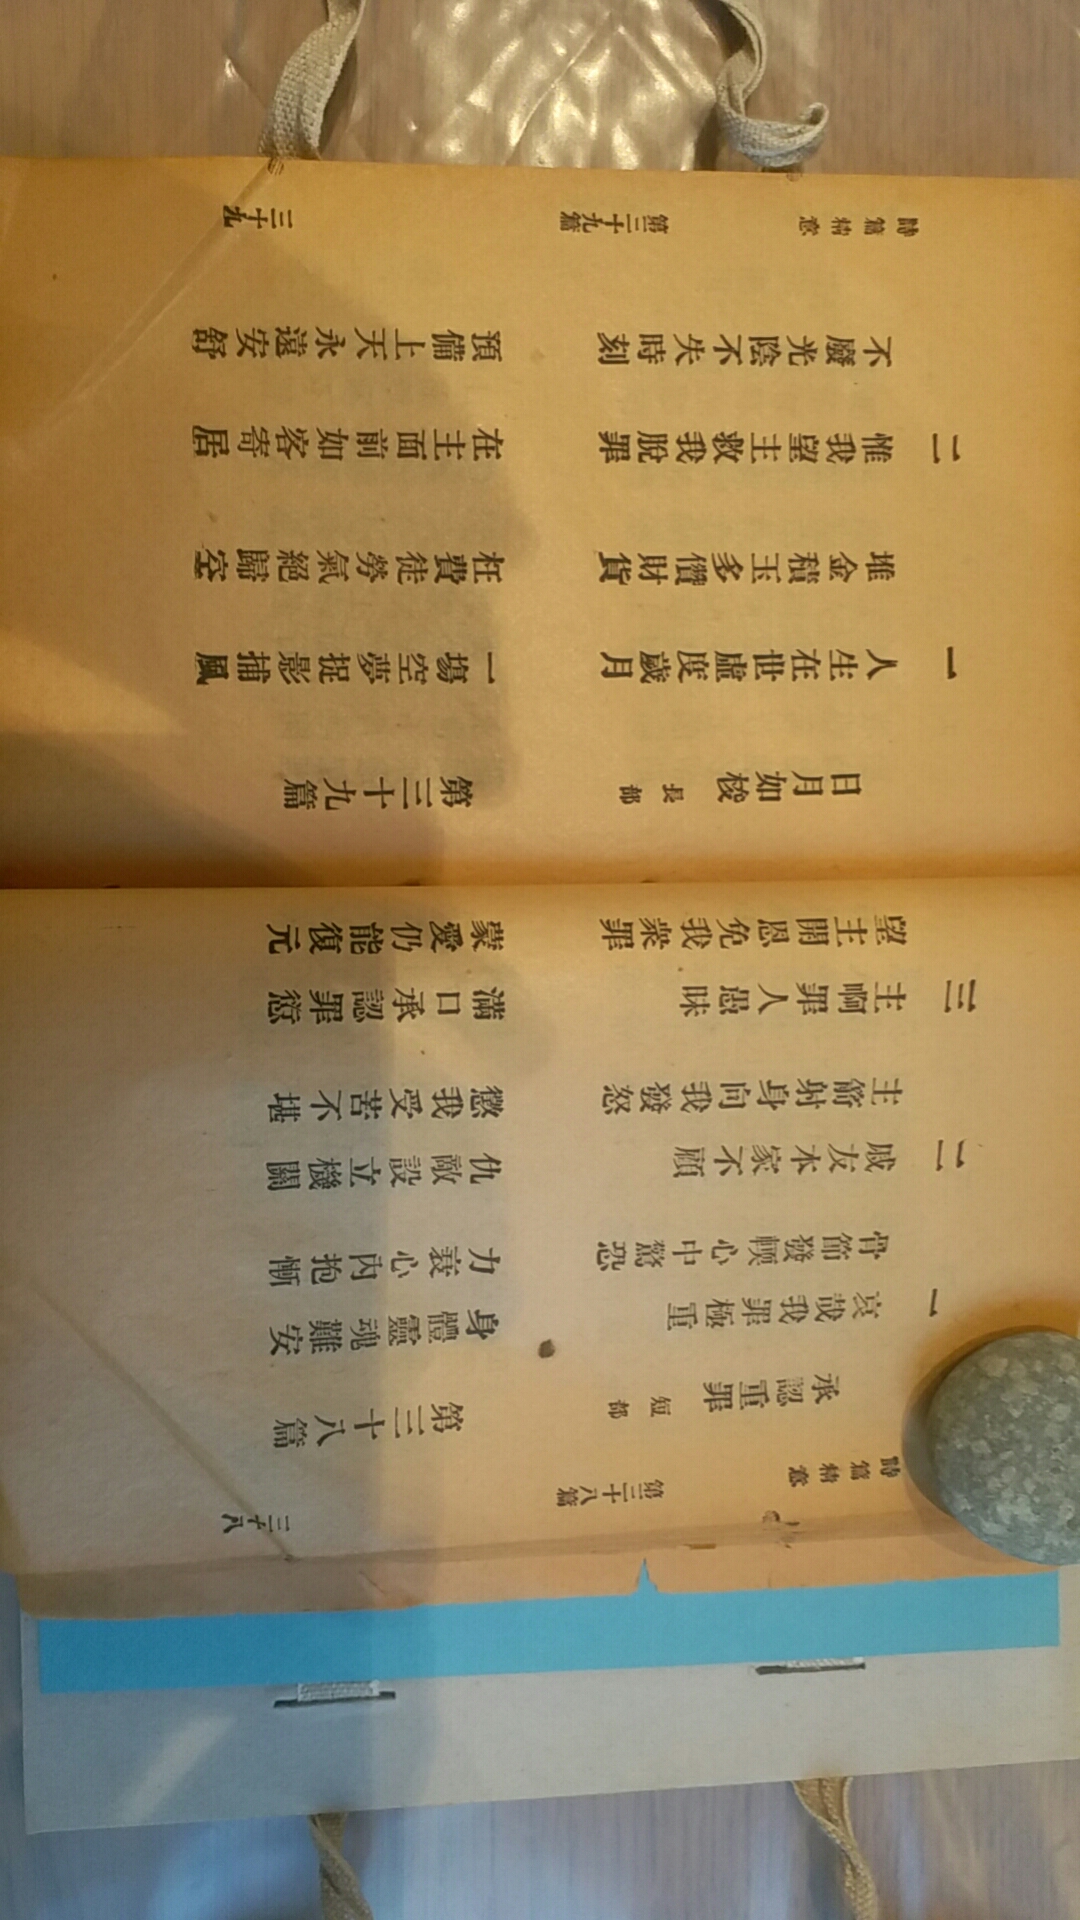 詩篇精意 第三十八篇 三十八
承認重罪 短部 第三十八篇
一 哀哉我罪極重 身體靈魂難安
骨節發顫心中驚恐 力衰心內抱慚
二 戚友本家不顧 仇敵設立機關
主箭射身向我發怒 懲我受苦不堪
三 主啊罪人愚昧 滿口承認罪愆
望主開恩免我衆罪 蒙愛仍能復元
日月如梭 長部 第三十九篇
一 人生在世虛度歲月 一塲空夢捉影捕風
堆金積玉多儹財貨 枉費徒勞氣絕歸空
二 惟我望主救我脫罪 在主面前如客寄居
不廢光陰不失時刻 預備上天永遠安舒
詩篇精意 第三十九篇 三十九